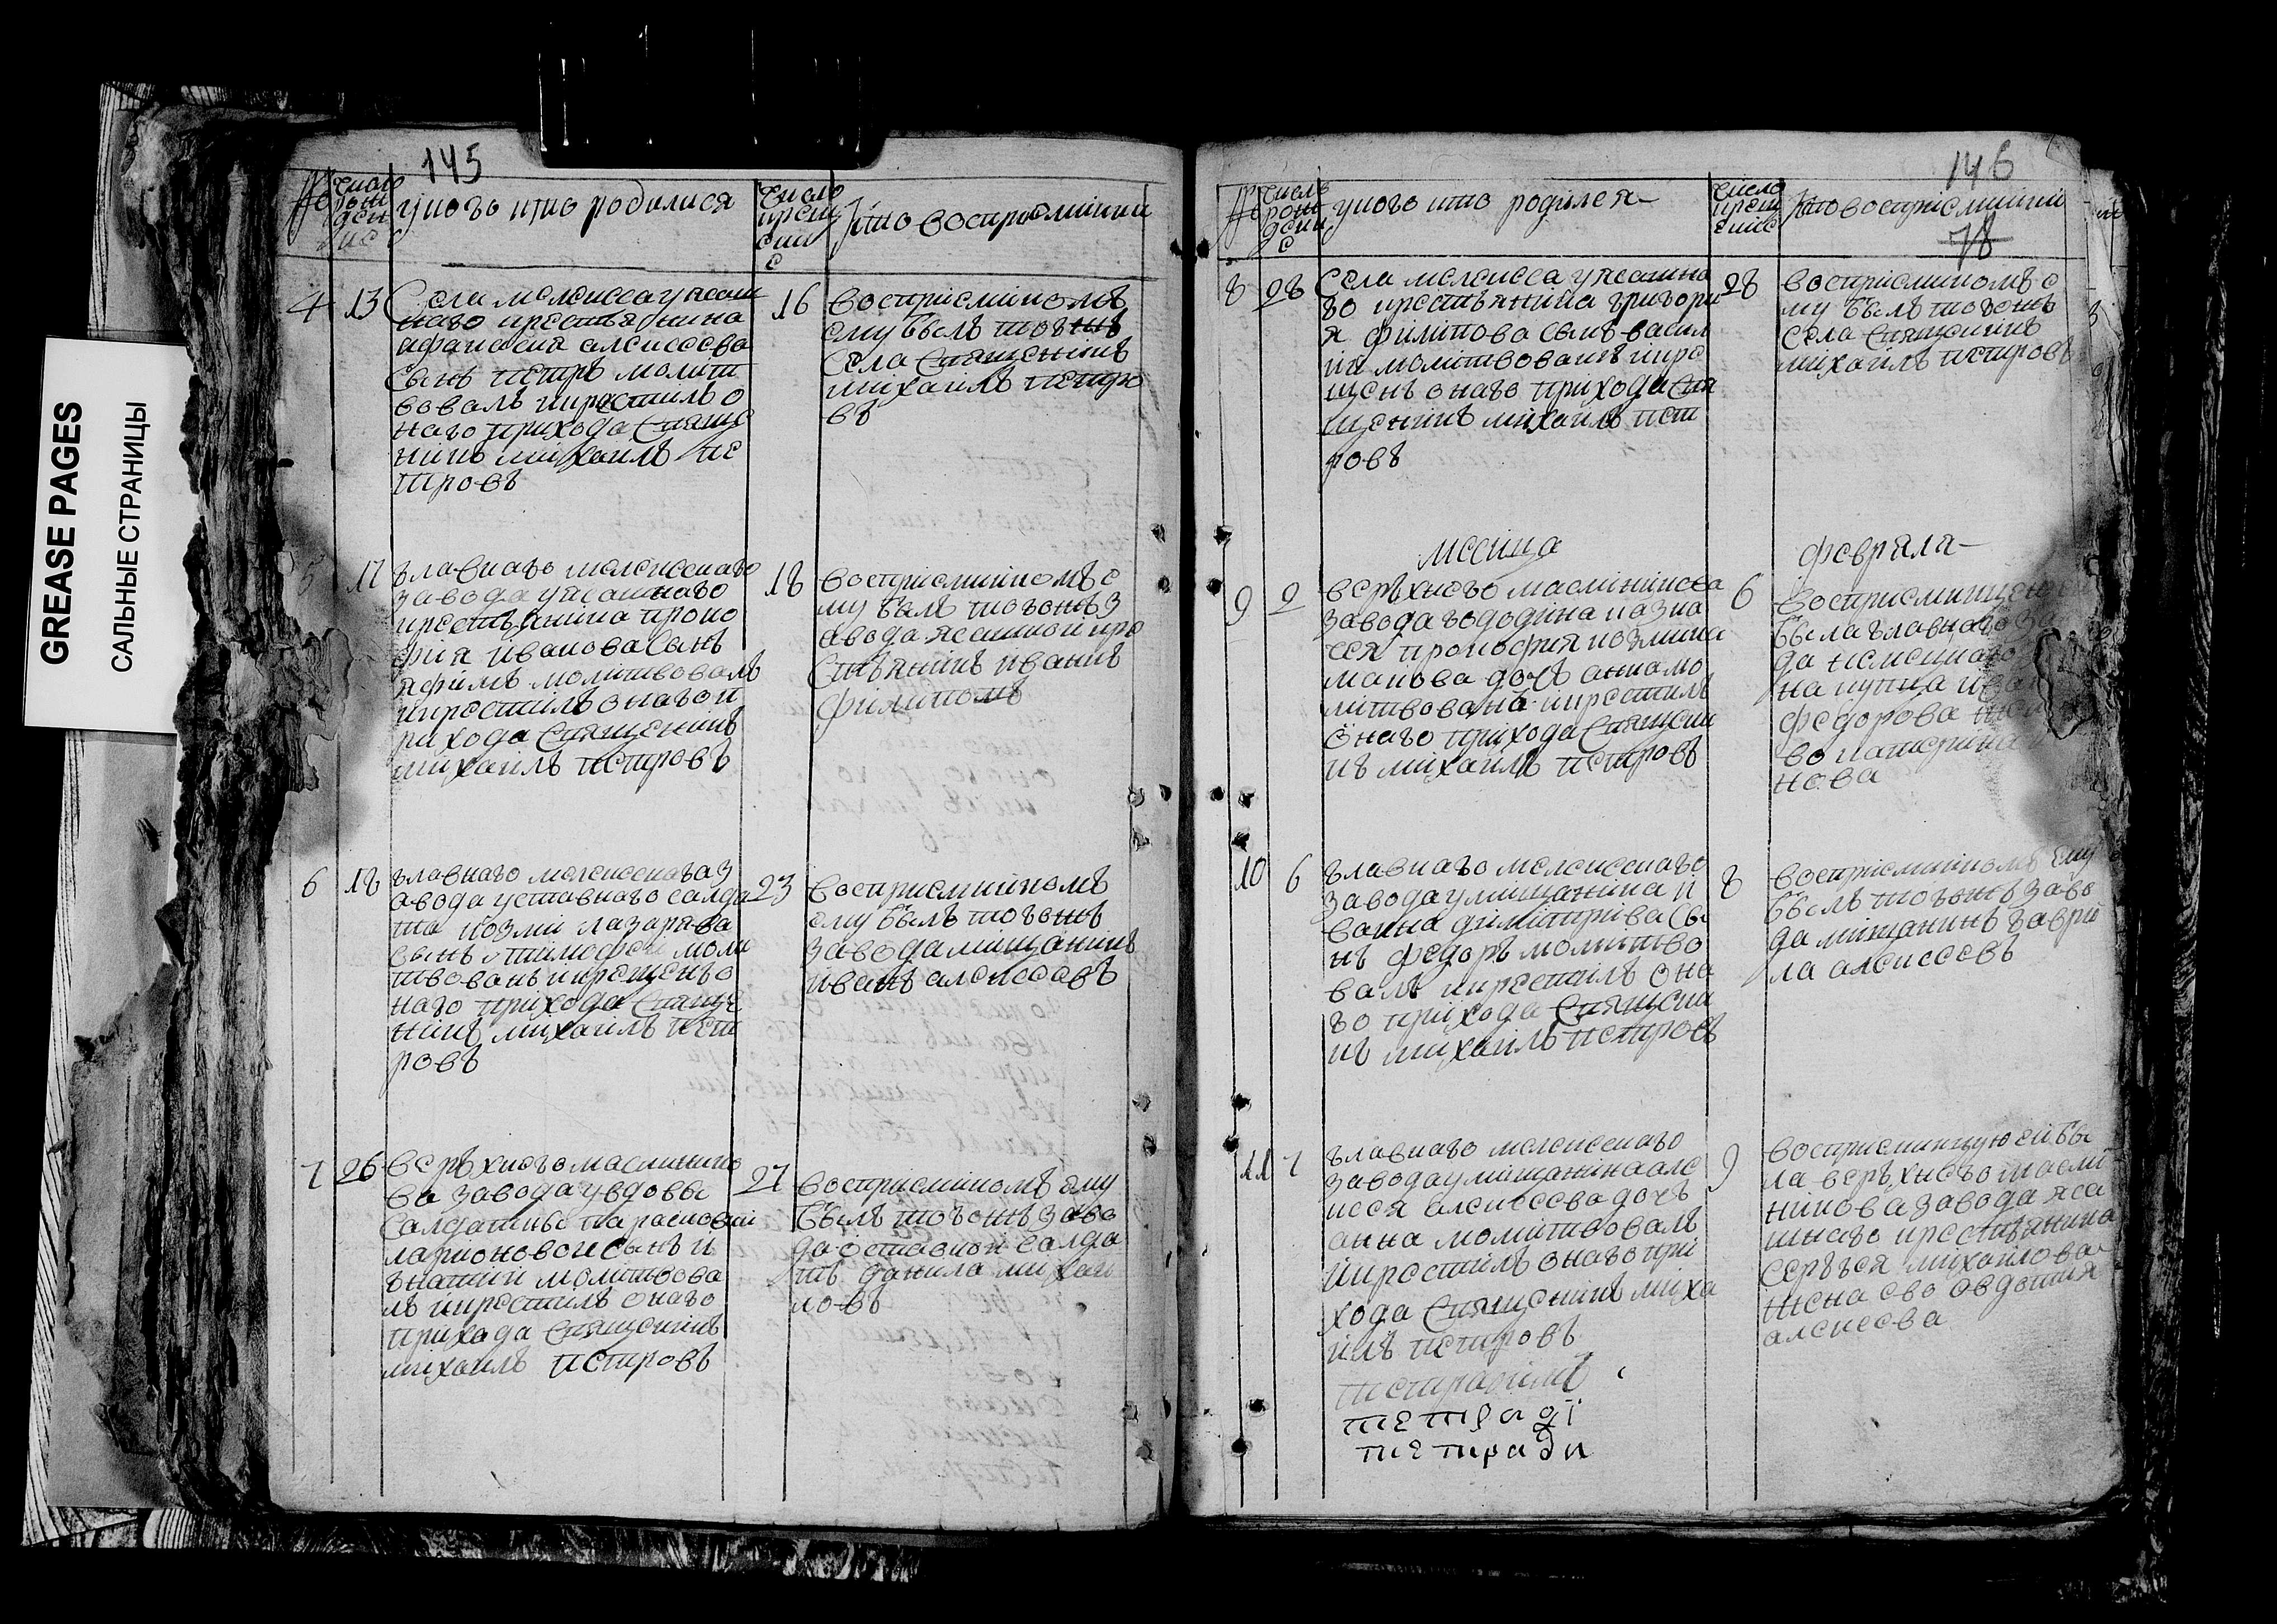 GREASE PAGES
САЛЬНЫЕ СТРАНИЦЫ
145
№
число
рож
дени
ие
у кого кто родилися
число
крещ
ени
е
кто восприемники
4
13
Села мелексеса у ясаш
наго крестьянина
афанасия алексеева
сынъ петръ молит
вовалъ и крестилъ о
наго прихода Священ
никъ михаилъ пе
тровъ
16
восприемникомъ
ему былъ тогожъ
села Священникъ
михаилъ петро
въ
5
17
главнаго мелексеснаго
завода у ясашнаго
крестьянина проко
фия иванова сынъ
яфимъ молитвовалъ
и крестилъ онаго п
рихода Священикъ
михаилъ петровъ
18
восприемникомъ е
му былъ тогожъ з
авода ясашной кре
стьянинъ иванъ
филипомъ
6
18
главнаго мелексеснаго з
авода у ставнаго салда
та козми лазарява
сынъ тимофеи моли
твованъ и крещенъ о
наго прихода Священ
никъ михаилъ пет
ровъ
23
восприемникомъ
ему былъ тогожъ
завода мищанинъ
иванъ алексеевъ
7
26
верьхнего маслинико
ва завода у вдовы
салдатьки парасковии
ларионовои сынъ и
гнатии молитвова
лъ и крестилъ онаго
прихода Священикъ
михаилъ петровъ
27
восприемникомъ ему
былъ тогожъ заво
да отставной салда
тъ данила михаи
ловъ
146
78
№
число
рож
дени
е
у кого кто родился
число
крещ
ение
кто восприемники
8
28
Села мелексеса у ясашна
го крестьянина григори
я филипова сынъ васил
ии молитвованъ и кре
щенъ онаго прихода Свя
щеникъ михаилъ пет
ровъ
28
восприемникомъ е
му былъ тогожъ
села Священикъ
михаилъ петровъ
месица
февраля
9
2
верьхнего маслиникова
завода володина казна
чея прокофия козмина
манова дочъ анна мо
литвована и крестилъ
онаго прихода Священи
къ михаилъ петровъ
6
восприемницею
была главнаго за
да немецкаго
на купца ива
федорова же
во катерина
нова
10
6
главнаго мелексеснаго
завода у мищанина и
вана димитрива сы
нъ федоръ молитво
валъ и крестилъ она
го прихода Священи
къ михаилъ петровъ
8
восприемникомъ ему
былъ тогожъ заво
да мищанинъ гаври
ла алексеевъ
11
7
главнаго мелексеснаго
завода у мищанина але
ксея алексеева дочъ
анна молитвовалъ
и крестилъ онаго при
хода Священикъ миха
илъ петровъ
тетради
тетради
9
восприемницую ей бы
ла верьхнего масли
никова завода яса
шнаго крестьянина
Сергъея михаилова
жена ево овдотия
алексеева